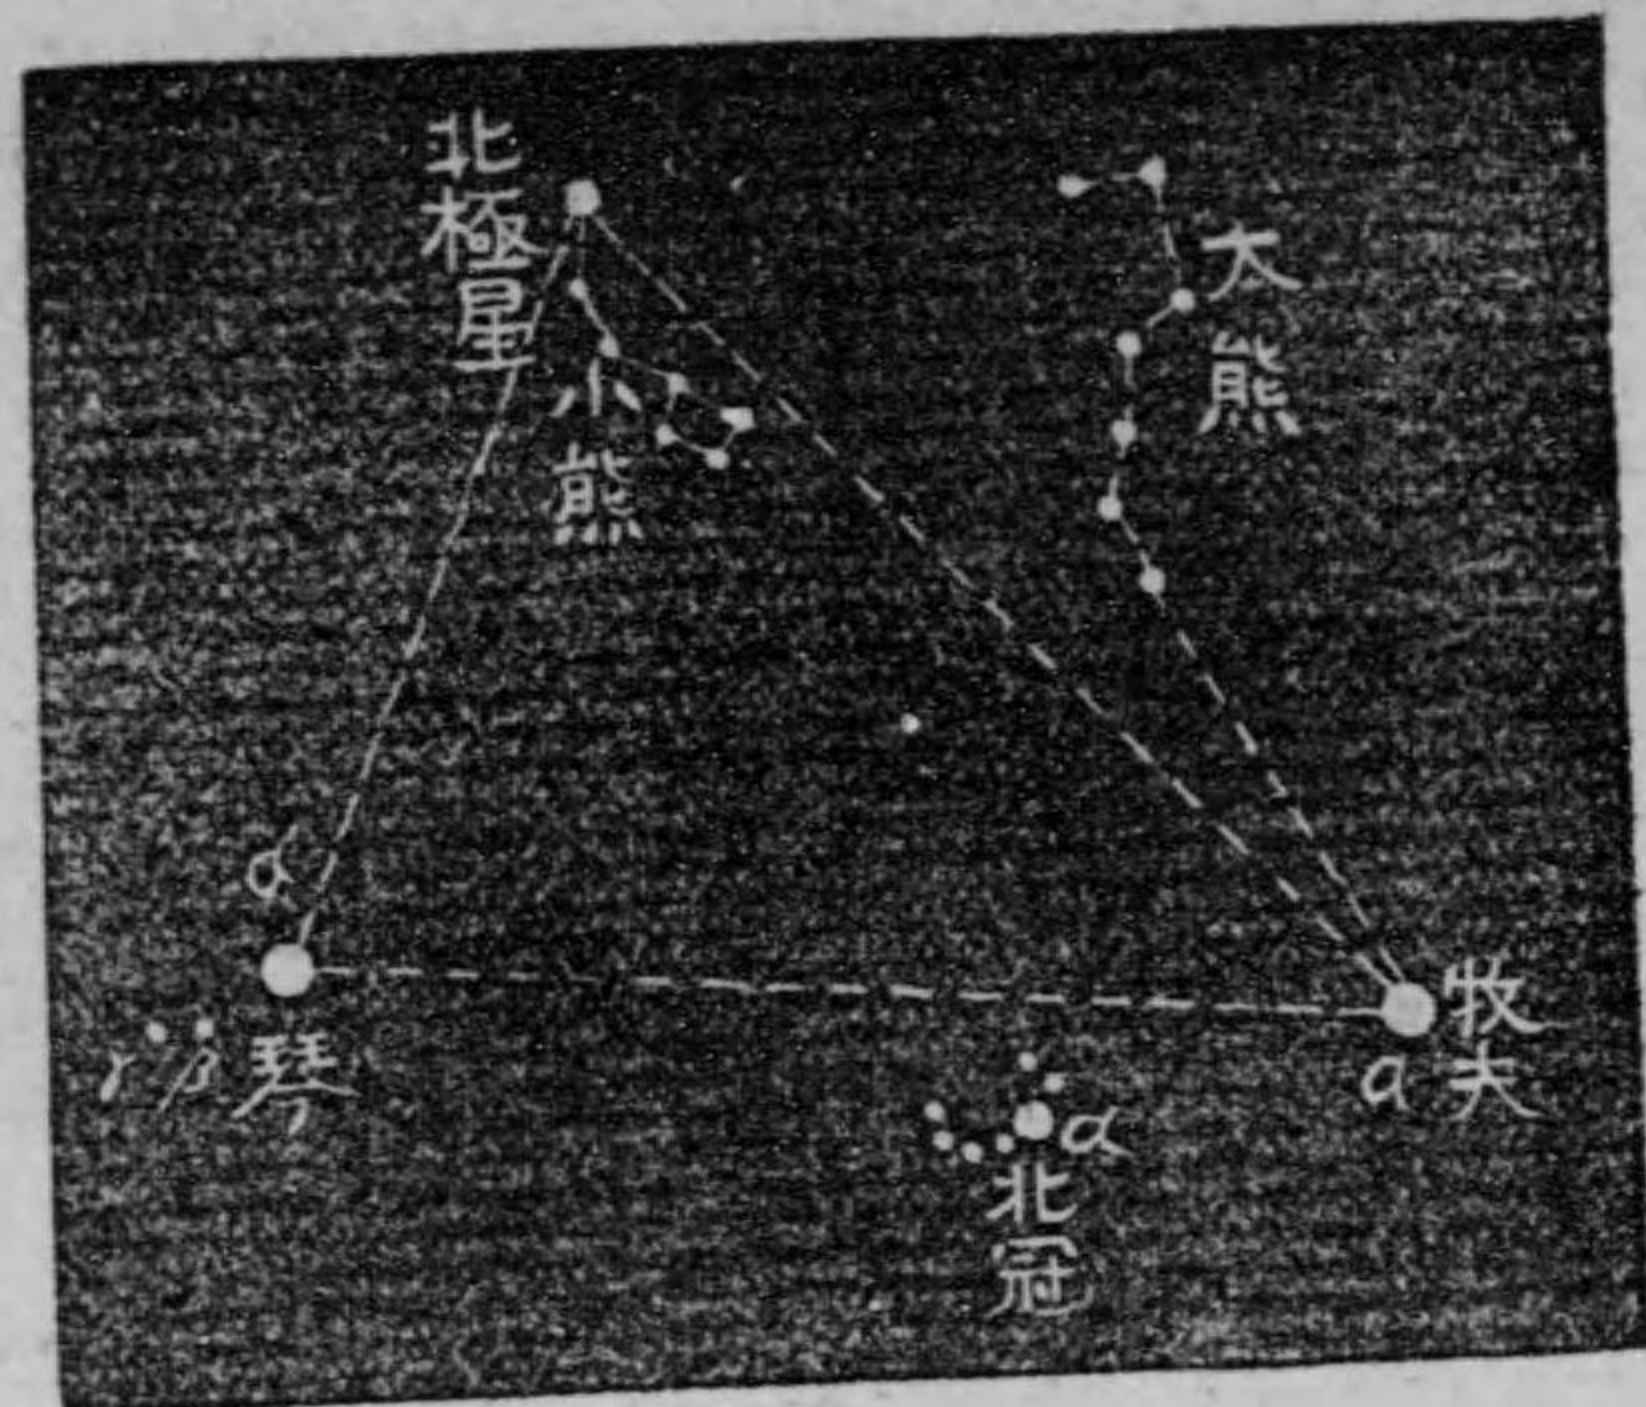 北極星
小熊
大熊
α
琴
β
γ
牧夫
α
α
北冠